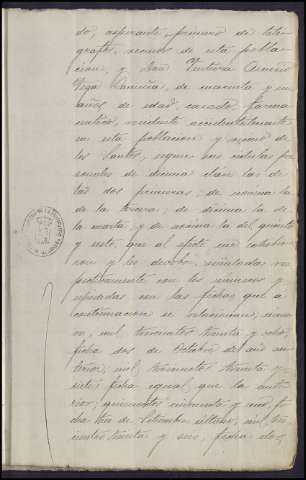 do, aspirante primero de telé-
grafo, vecinos de esta pobla-
cion, y Don Ventura
Vega de cincuenta y un
años de edad, casado, farma-
ceutico, residente accidentalmente
en esta poblacion y vecino de
los Santos, segun sus cedulas per-
sonales de decima clase las de
los dos primeros; de novena la
de la tercera; de décima la de
la cuarta; y de novena la del quinto
y este, que al efecto me exhibie-
ron y les devolví, señaladas res-
pectivamente con los números y
expedidas con las fechas que á
continuacion se relacionan:
mil trescientos treinta y ocho,
fecha dos de Octubre del año an-
terior; mil trescientos treinta y
siete, fecha igual que la ante-
rior; quinientos cincuenta y uno, fe-
cha tres de Setiembre último; mil tres-
cientos treinta y seis, fecha dos